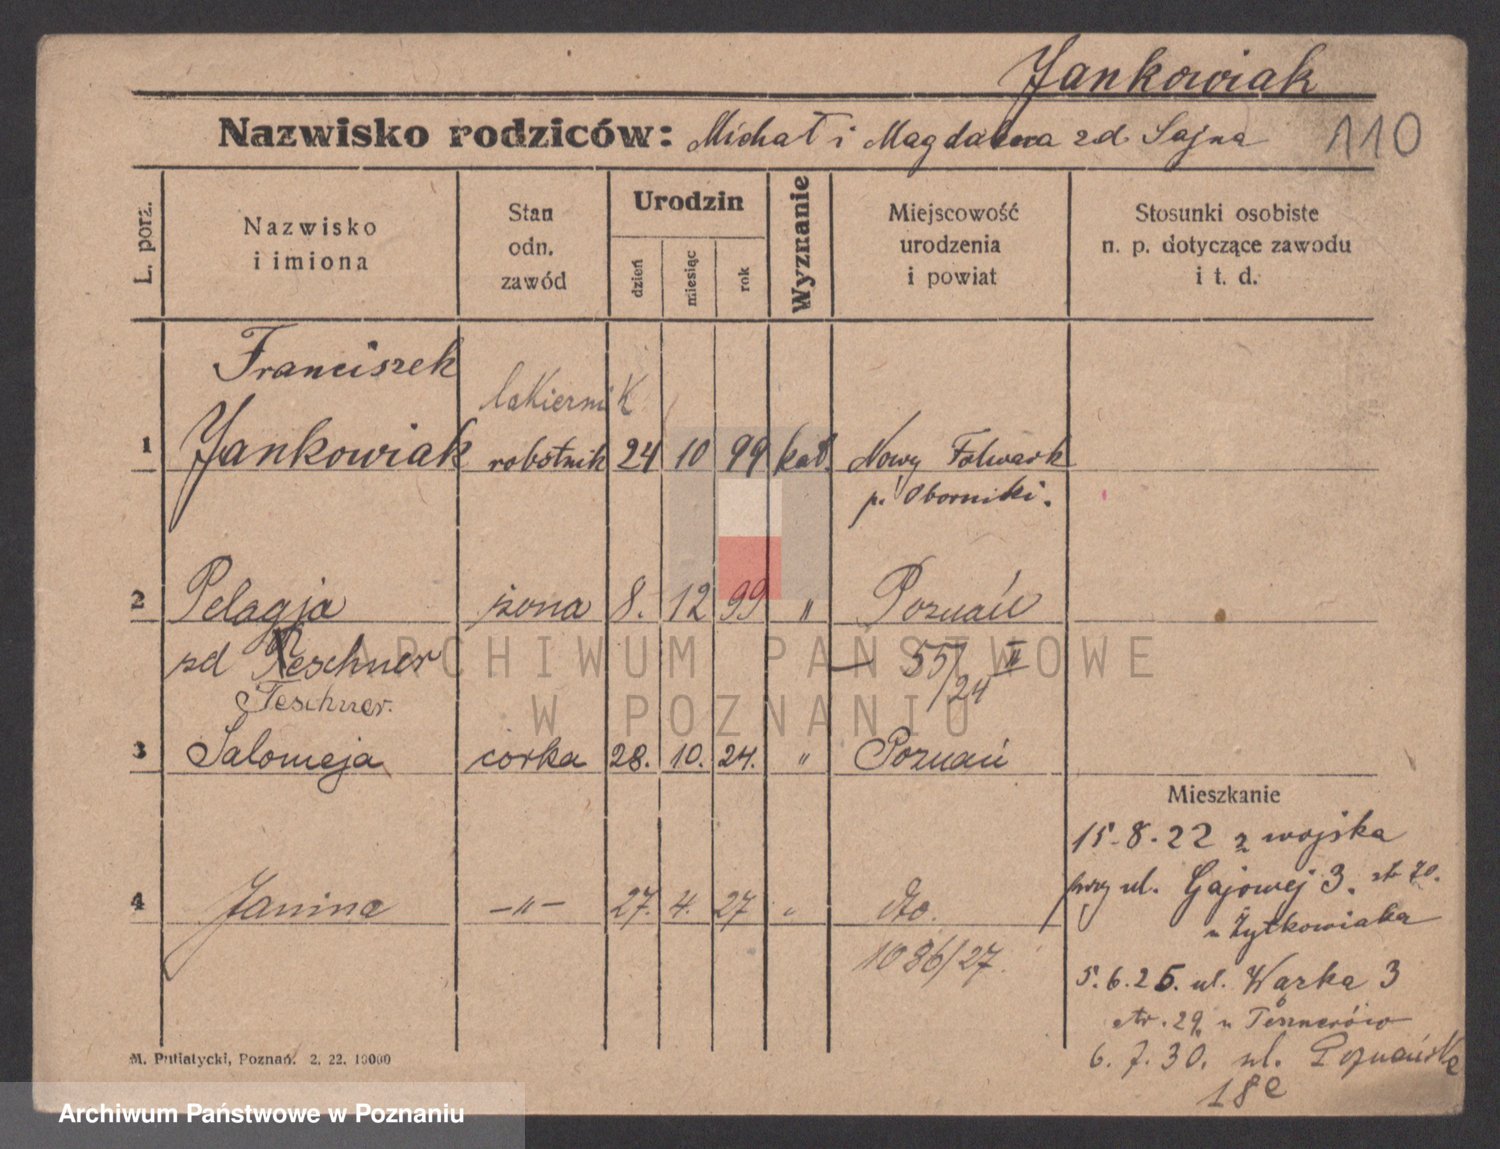 Jankowiak
Nazwisko rodziców: Michał i Magdalena zd. Sajna 110
L. porz.
Nazwisko
i imiona
Stan
odn.
zawód
Urodzin
dzień
miesiąc
rok
Wyznanie
Miejscowość
urodzenia
i powiat
Stosunki osobiste
n. p. dotyczące zawodu
i t. d.
Franciszek
lakiernik
1 Jankowiak robotnik 24 10 99 kat. Nowy Folwark
p. Oborniki.
2 Pelagja żona 8. 12 99 " Poznań
zd Reschner — 55/24 II
Teschner.
3 Salomeja córka 28. 10. 24. " Poznań
4 Janina —"— 27. 4. 27 " dto.
1086/27.
Mieszkanie
15-8-22 z wojska
przy ul. Gajowej 3. str 70.
u Żytkowiaka
5.6.25. ul. Warka 3
str. 29 u Tesznerów
6.7.30. ul. Poznańska
18e
M. Putiatycki, Poznań. 2. 22. 10000
ARCHIWUM PAŃSTWOWE
W POZNANIU
Archiwum Państwowe w Poznaniu